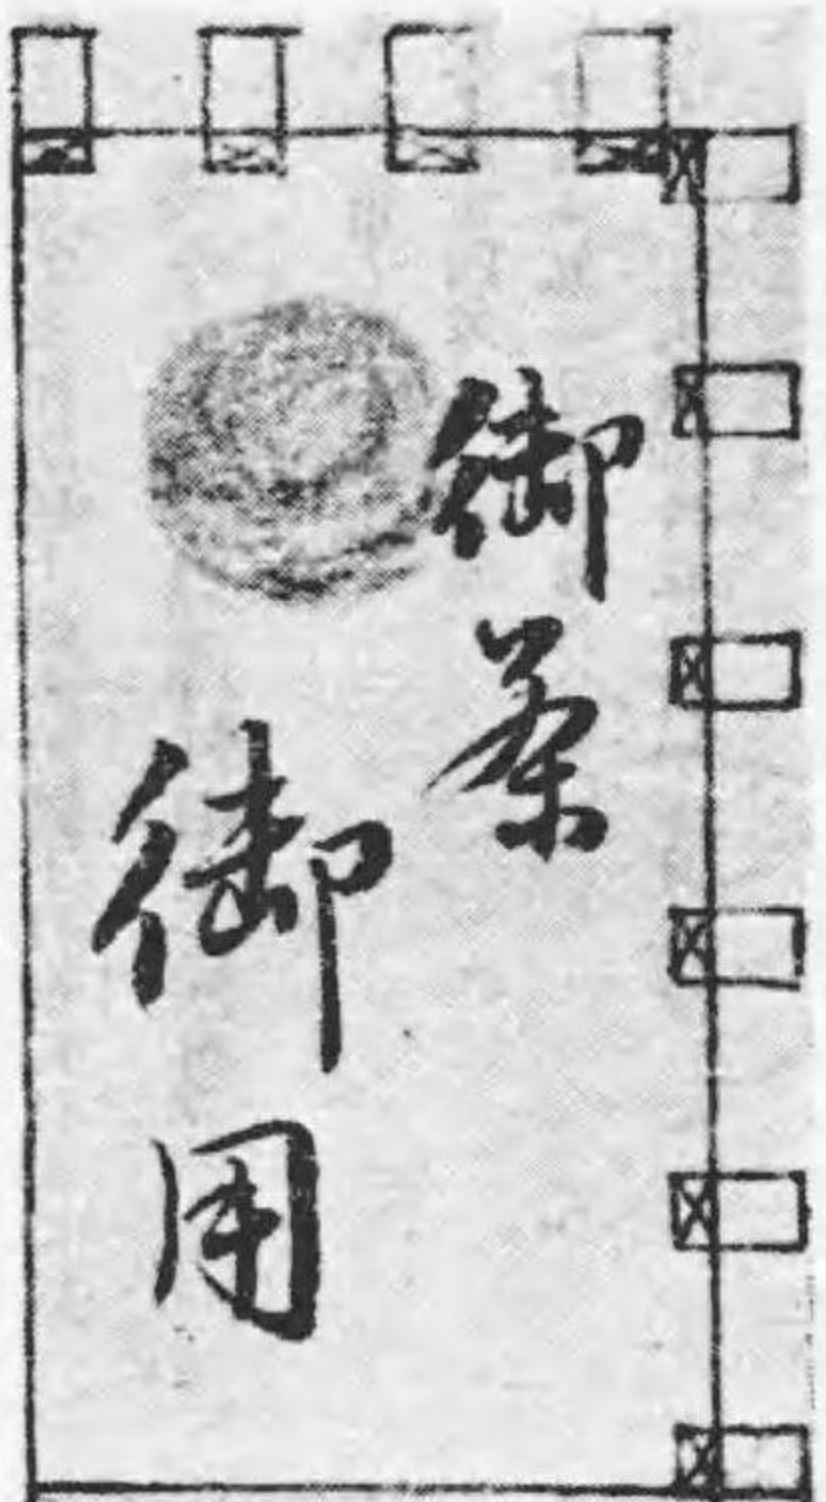 御茶
御用